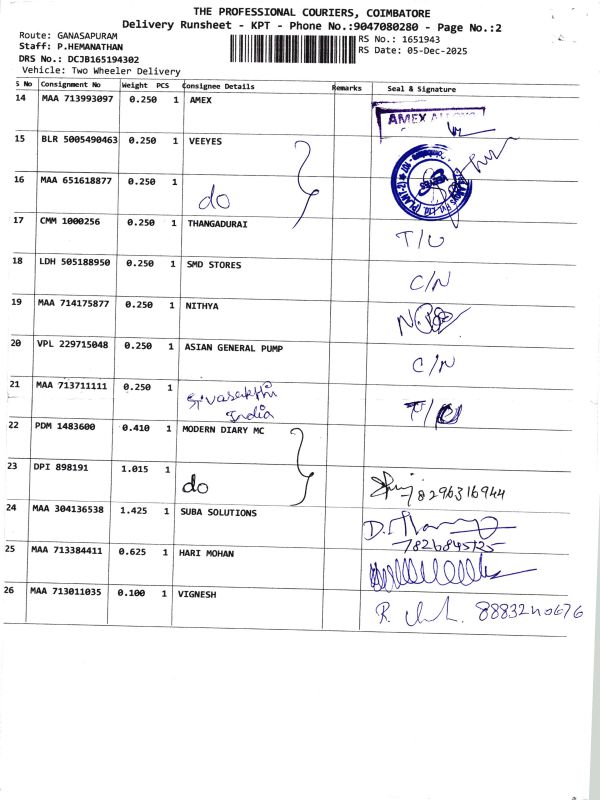 THE PROFESSIONAL COURIERS, COIMBATORE
Delivery Runsheet - KPT - Phone No.:9047080280 - Page No.:2
Route: GANASAPURAM
RS No.: 1651943
Staff: P.HEMANATHAN
RS Date: 05-Dec-2025
DRS No.: DCJB165194302
Vehicle: Two Wheeler Delivery
S No Consignment No Weight PCS Consignee Details Remarks Seal & Signature
14 MAA 713993097 0.250 1 AMEX AMEX
15 BLR 5005490463 0.250 1 VEEYES
16 MAA 651618877 0.250 1 do
17 CMM 1000256 0.250 1 THANGADURAI T/U
18 LDH 505188950 0.250 1 SMD STORES C/N
19 MAA 714175877 0.250 1 NITHYA
20 VPL 229715048 0.250 1 ASIAN GENERAL PUMP C/N
21 MAA 713711111 0.250 1 Sivasakthi India
22 PDM 1483600 0.410 1 MODERN DIARY MC
23 DPI 898191 1.015 1 do 8296316944
24 MAA 304136538 1.425 1 SUBA SOLUTIONS
25 MAA 713384411 0.625 1 HARI MOHAN
26 MAA 713011035 0.100 1 VIGNESH